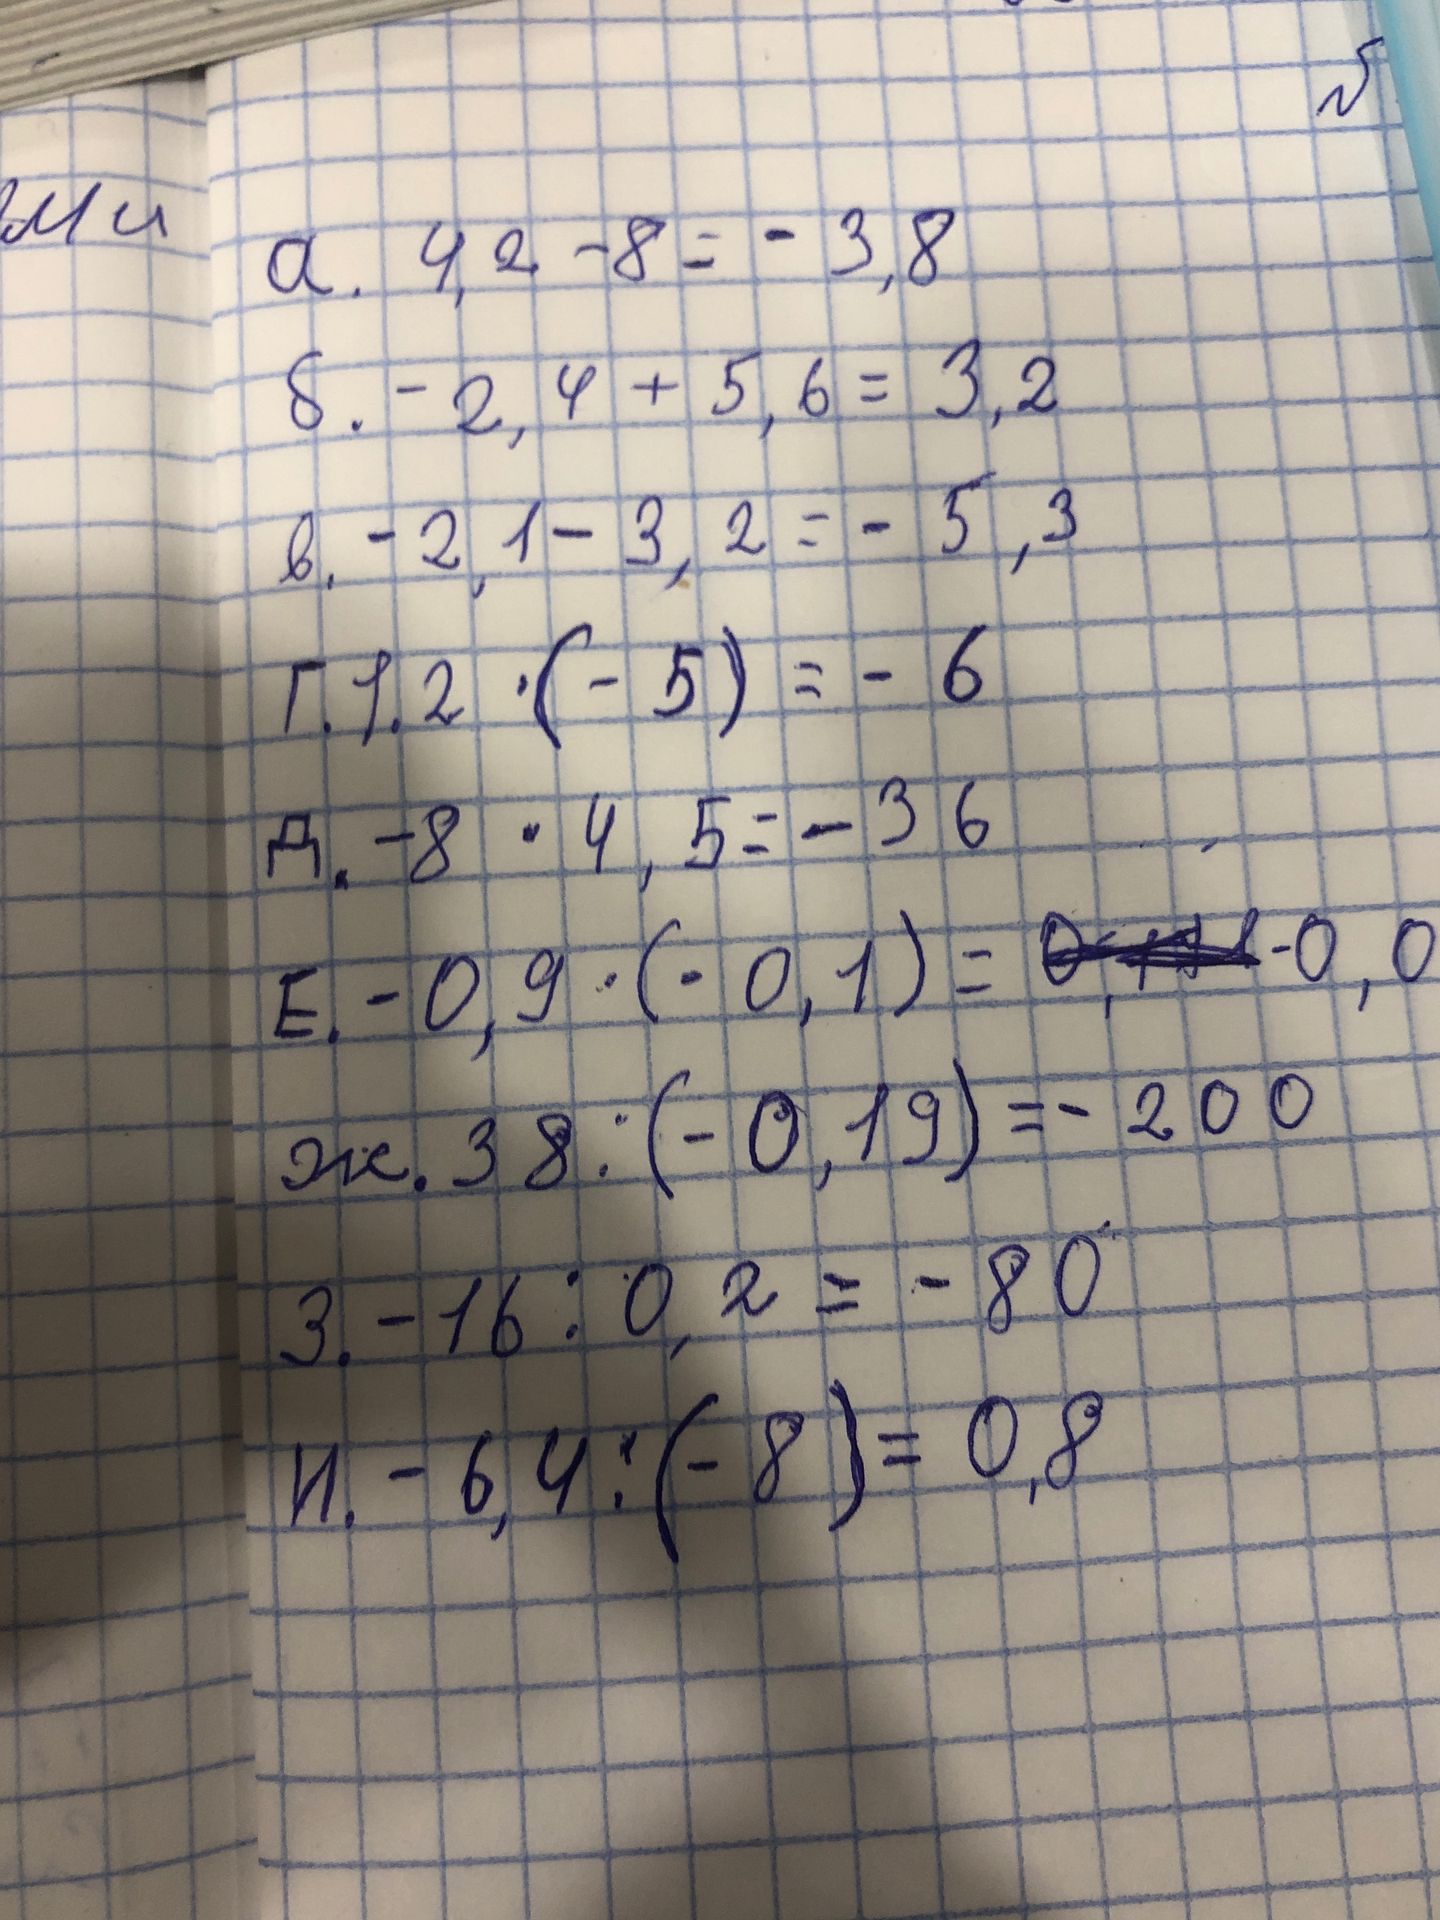 ми
а. 4,2 - 8 = - 3,8
б. - 2,4 + 5,6 = 3,2
в. - 2,1 - 3,2 = - 5,3
Г. 1.2 · (- 5) = - 6
Д. - 8 · 4,5 = - 36
Е. - 0,9 · (- 0,1) = -0,0
ж. 38 : (- 0,19) = - 200
З. - 16 : 0,2 = - 80
И. - 6,4 : (- 8) = 0,8